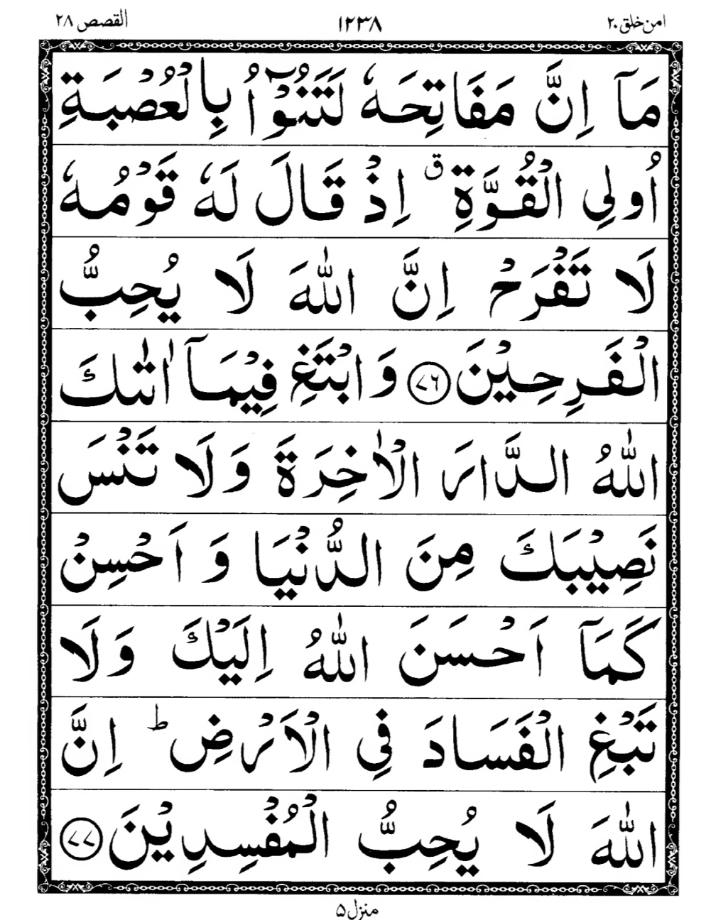 امن خلق ۲۰ ۱۲۳۸ القصص ۲۸
مَاۤ اِنَّ مَفَاتِحَهٗ لَتَنُوْٓاُ بِالْعُصْبَةِ
اُولِی الْقُوَّةِ ۗق اِذْ قَالَ لَهٗ قَوْمُهٗ
لَا تَفْرَحْ اِنَّ اللّٰهَ لَا یُحِبُّ
الْفَرِحِیْنَ ﴿۷۶﴾ وَ ابْتَغِ فِیْمَاۤ اٰتٰىكَ
اللّٰهُ الدَّارَ الْاٰخِرَةَ وَ لَا تَنْسَ
نَصِیْبَكَ مِنَ الدُّنْیَا وَ اَحْسِنْ
كَمَاۤ اَحْسَنَ اللّٰهُ اِلَیْكَ وَ لَا
تَبْغِ الْفَسَادَ فِی الْاَرْضِ ؕ اِنَّ
اللّٰهَ لَا یُحِبُّ الْمُفْسِدِیْنَ ﴿۷۷﴾
منزل ۵